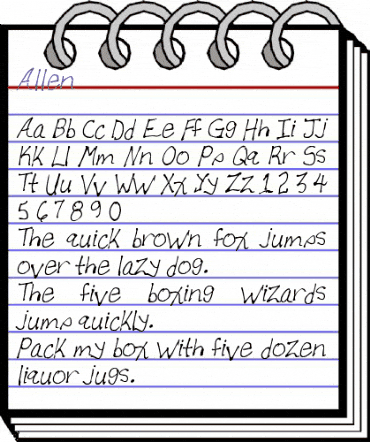 Allen
Aa Bb Cc Dd Ee Ff Gg Hh Ii Jj
Kk Ll Mm Nn Oo Pp Qq Rr Ss
Tt Uu Vv Ww Xx Yy Zz 1 2 3 4
5 6 7 8 9 0
The quick brown fox jumps
over the lazy dog.
The five boxing wizards
jump quickly.
Pack my box with five dozen
liquor jugs.